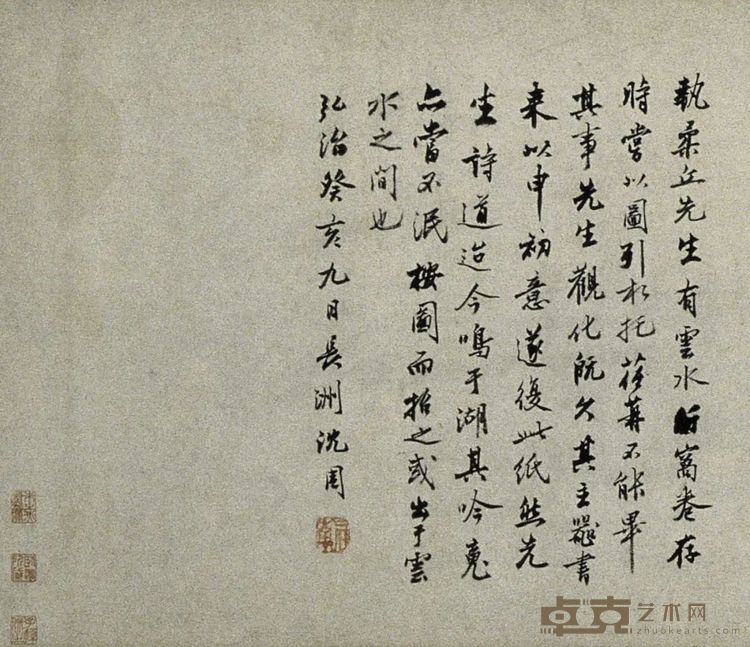 執柔丘先生有雲水行窩卷存
時嘗以圖引相托荏苒不能畢
其事先生觀化既久其主器書
来以申初意遂復此紙然先
生詩道迨今鳴于湖其吟魂
亦當不泯按圖而招之或出于雲
水之間也
弘治癸亥九日長洲沈周
卓克艺术网
zhuokearts.com